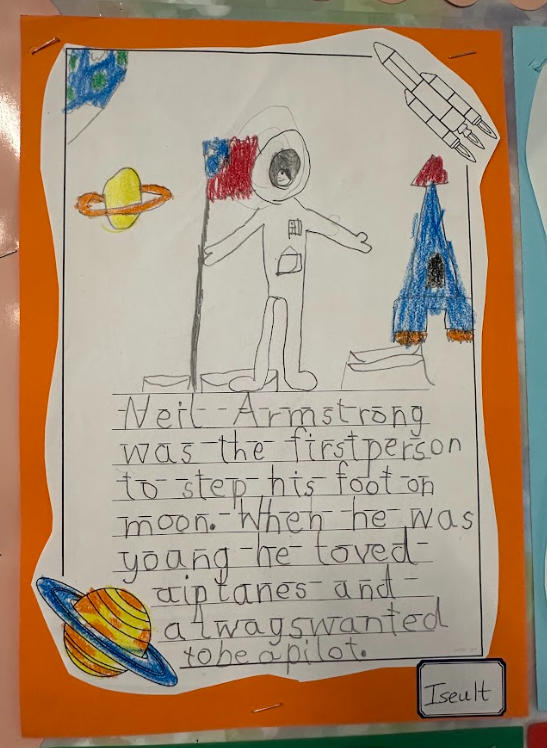 Neil Armstrong
was the first person
to step his foot on
moon. When he was
yoang he loved
aiplanes and
always wanted
to be a pilot.
Iseult